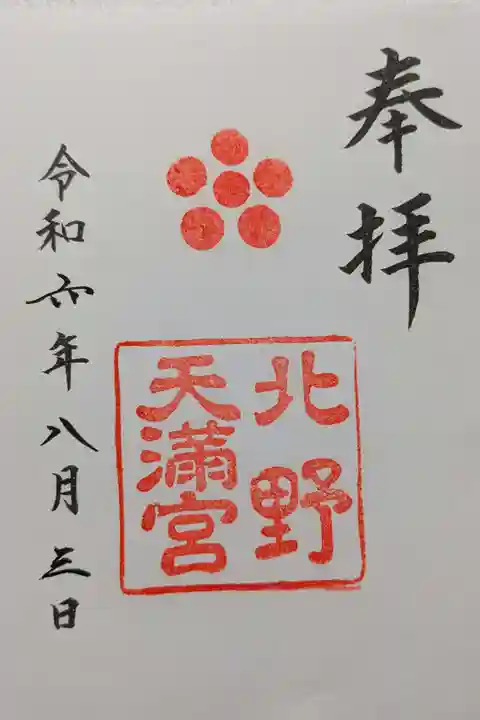 奉拝
北野
天満宮
令和六年八月三日